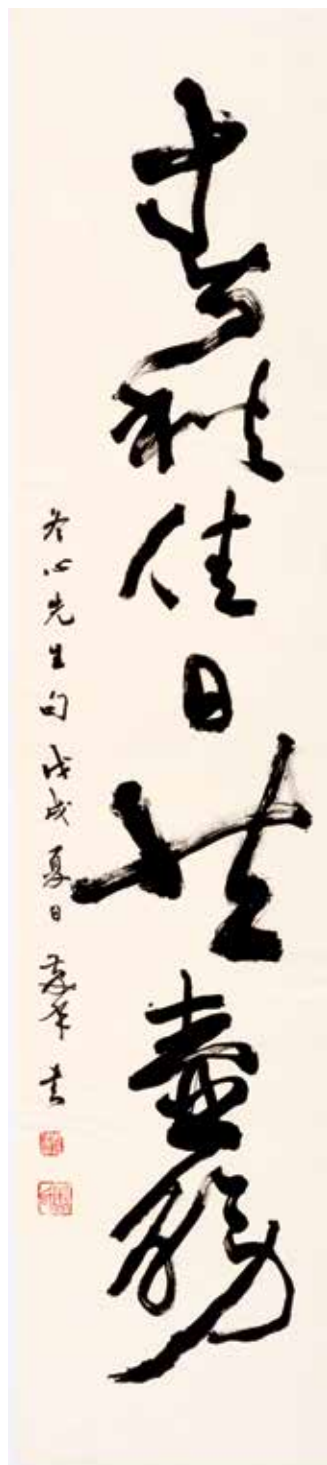 春秋佳日壺觴
冬心先生句 戊戌夏日 書